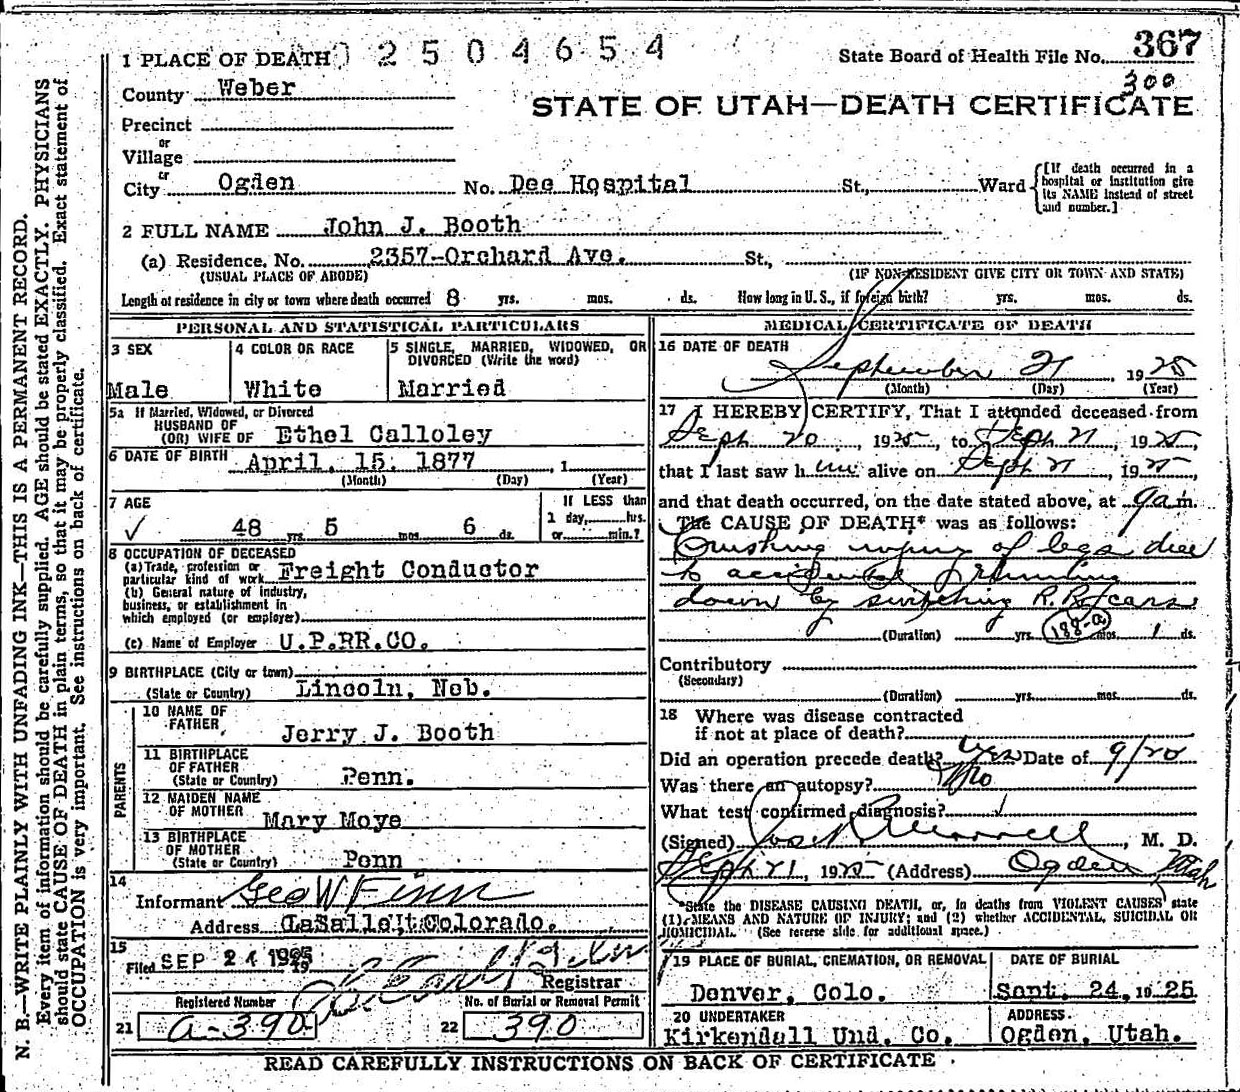 1 PLACE OF DEATH 0 2 5 0 4 6 5 4
State Board of Health File No. 367
300
County Weber
STATE OF UTAH—DEATH CERTIFICATE
Precinct
or
Village
or
City Ogden No. Dee Hospital St., Ward
[If death occurred in a
hospital or institution give
its NAME instead of street
and number.]
2 FULL NAME John J. Booth
(a) Residence, No. 2357-Orchard Ave. St.,
(USUAL PLACE OF ABODE) (IF NON-RESIDENT GIVE CITY OR TOWN AND STATE)
Length of residence in city or town where death occurred 8 yrs. mos. ds. How long in U. S., if foreign birth? yrs. mos. ds.
PERSONAL AND STATISTICAL PARTICULARS
3 SEX
Male
4 COLOR OR RACE
White
5 SINGLE, MARRIED, WIDOWED, OR
DIVORCED (Write the word)
Married
5a If Married, Widowed, or Divorced
HUSBAND OF
(OR) WIFE OF Ethel Calloley
6 DATE OF BIRTH April. 15. 1877 , 1
(Month) (Day) (Year)
7 AGE
48 yrs. 5 mos. 6 ds.
If LESS than
1 day, hrs.
or min.?
8 OCCUPATION OF DECEASED
(a) Trade, profession or
particular kind of work Freight Conductor
(b) General nature of industry,
business, or establishment in
which employed (or employer)
(c) Name of Employer U.P.RR.CO.
9 BIRTHPLACE (City or town)
(State or Country) Lincoln, Neb.
PARENTS
10 NAME OF
FATHER Jerry J. Booth
11 BIRTHPLACE
OF FATHER
(State or Country) Penn.
12 MAIDEN NAME
OF MOTHER Mary Moye
13 BIRTHPLACE
OF MOTHER
(State or Country) Penn
14
Informant Geo W Finn
Address LaSalle St Colorado.
15
Filed SEP 24 1925
Registrar
Registered Number No. of Burial or Removal Permit
21 a-390 22 390
MEDICAL CERTIFICATE OF DEATH
16 DATE OF DEATH
September 21, 1925
(Month) (Day) (Year)
17 I HEREBY CERTIFY, That I attended deceased from
Sept 20, 1925, to Sept 21, 1925,
that I last saw him alive on Sept 21, 1925,
and that death occurred, on the date stated above, at 9 a m.
The CAUSE OF DEATH* was as follows:
Crushing injury of legs due
to accidental
down by switching R.R. cars
(Duration) yrs. mos. 1 ds.
188-a
Contributory
(Secondary)
(Duration) yrs. mos. ds.
18 Where was disease contracted
if not at place of death?
Did an operation precede death? yes Date of 9/20
Was there an autopsy? No
What test confirmed diagnosis?
(Signed) Jos R Morrell, M. D.
Sept 21, 1925 (Address) Ogden Utah
*State the DISEASE CAUSING DEATH, or, in deaths from VIOLENT CAUSES state
(1) MEANS AND NATURE OF INJURY; and (2) whether ACCIDENTAL, SUICIDAL OR
HOMICIDAL. (See reverse side for additional space.)
19 PLACE OF BURIAL, CREMATION, OR REMOVAL
Denver, Colo.
DATE OF BURIAL
Sept. 24, 19 25
20 UNDERTAKER
Kirkendall Und. Co.
ADDRESS.
Ogden, Utah.
READ CAREFULLY INSTRUCTIONS ON BACK OF CERTIFICATE
N. B.—WRITE PLAINLY WITH UNFADING INK—THIS IS A PERMANENT RECORD.
Every item of information should be carefully supplied. AGE should be stated EXACTLY. PHYSICIANS
should state CAUSE OF DEATH in plain terms, so that it may be properly classified. Exact statement of
OCCUPATION is very important. See instructions on back of certificate.